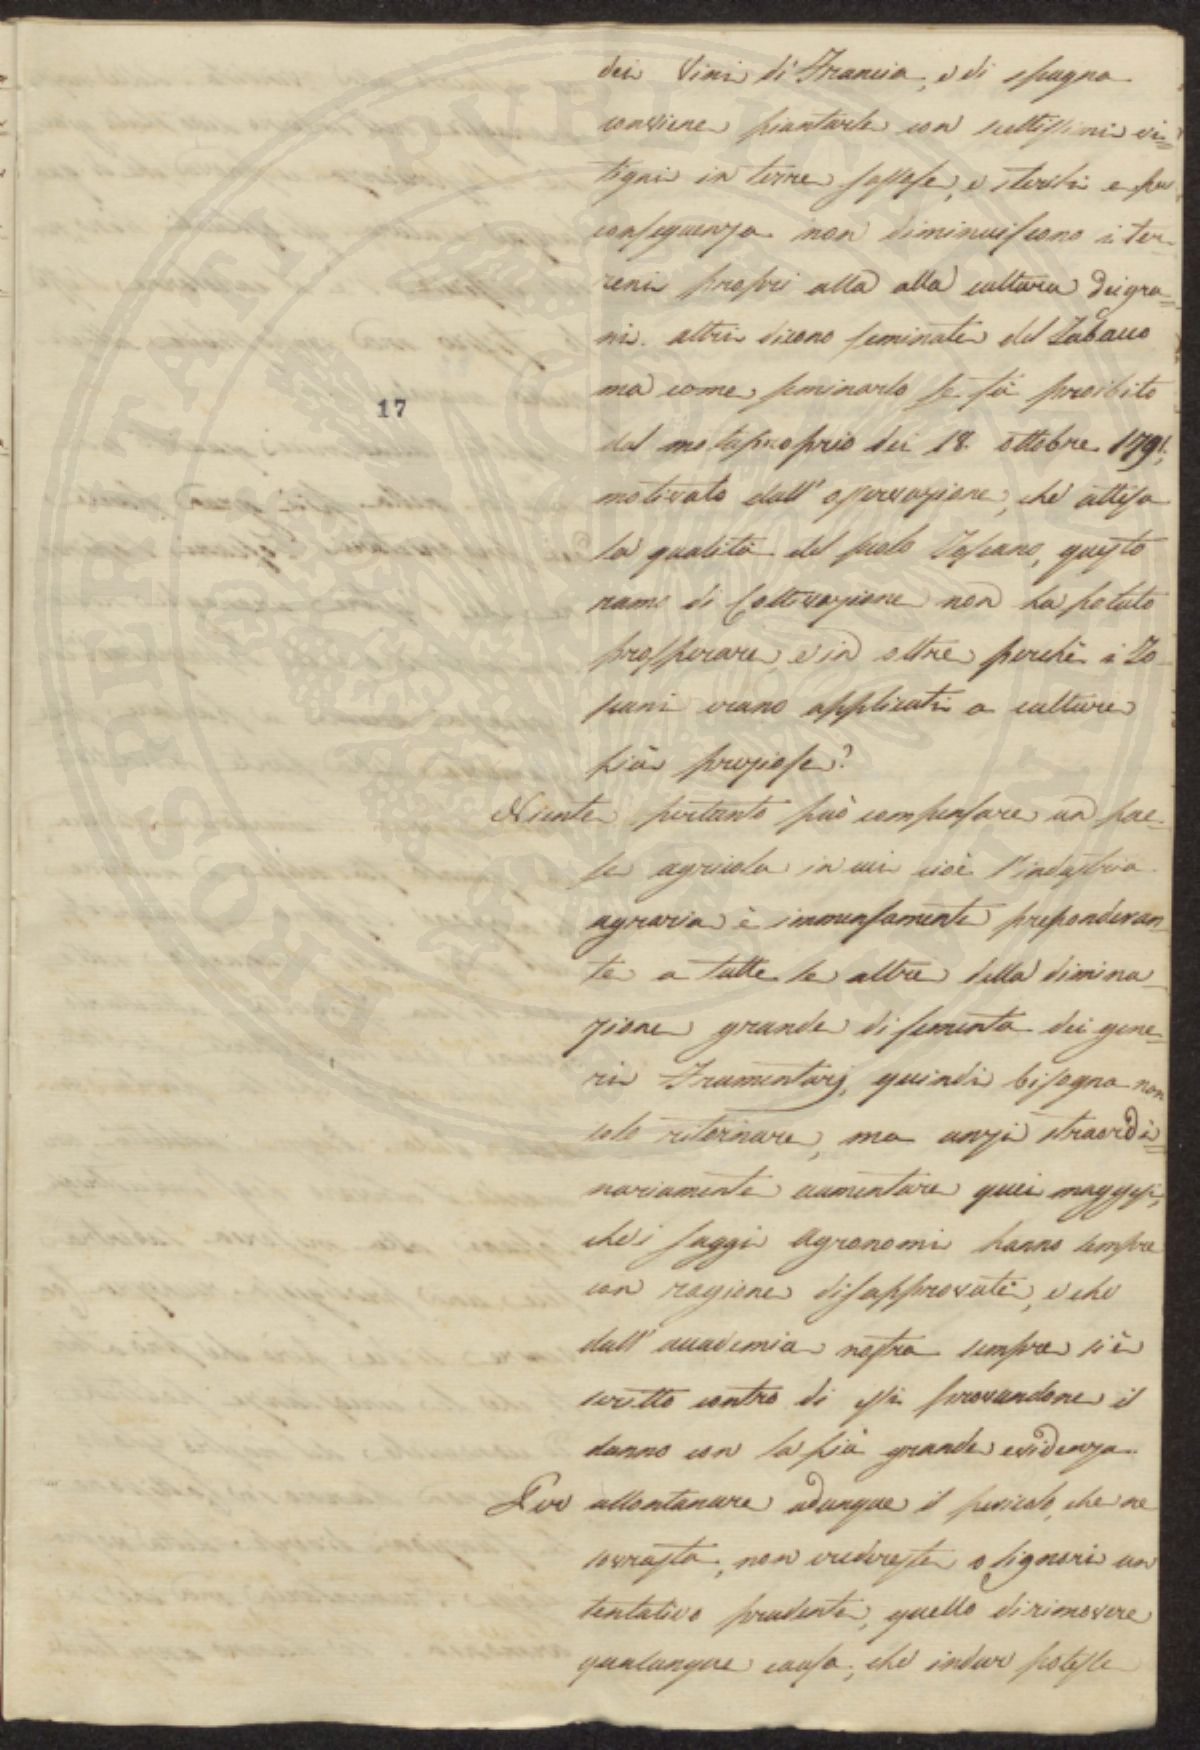 dei Vini di Francia, e di spagna
conviene piantarle con sceltissimi vi=
tigni in terre sassose, e sterili e per
conseguenza non diminuiscono i ter=
reni propri alla alla cultura dei gra=
ni. altri dicono seminate del Tabacco
17
ma come seminarlo se fù proibito
dal motuproprio dei 18. ottobre 1791.,
motivato dall' osservazione, che attesa
la qualità del suolo Toscano, questo
ramo di Coltivazione non ha potuto
prosperare, e in oltre perchè i To=
scani erano applicati a culture
più preziose?
Niente pertanto può compensare un pae=
se agricola in cui cioè l'industria
agraria è immensamente preponderan=
te a tutte le altre della diminu=
zione grande di sementa dei gene=
ri Frumentarj, quindi bisogna non
solo ritornare, ma anzi straordi=
nariamente aumentare quei maggesi,
che i saggi Agronomi hanno sempre
con ragione disapprovati, e che
dall' accademia nostra sempre si è
scritto contro di essi provandone il
danno con la più grande evidenza.
Per allontanare adunque il pericolo, che ne
sovrasta, non credereste o signori un
tentativo prudente, quello di rimovere
qualunque causa, che indur potesse
PROSPERITATI PUBLICAE